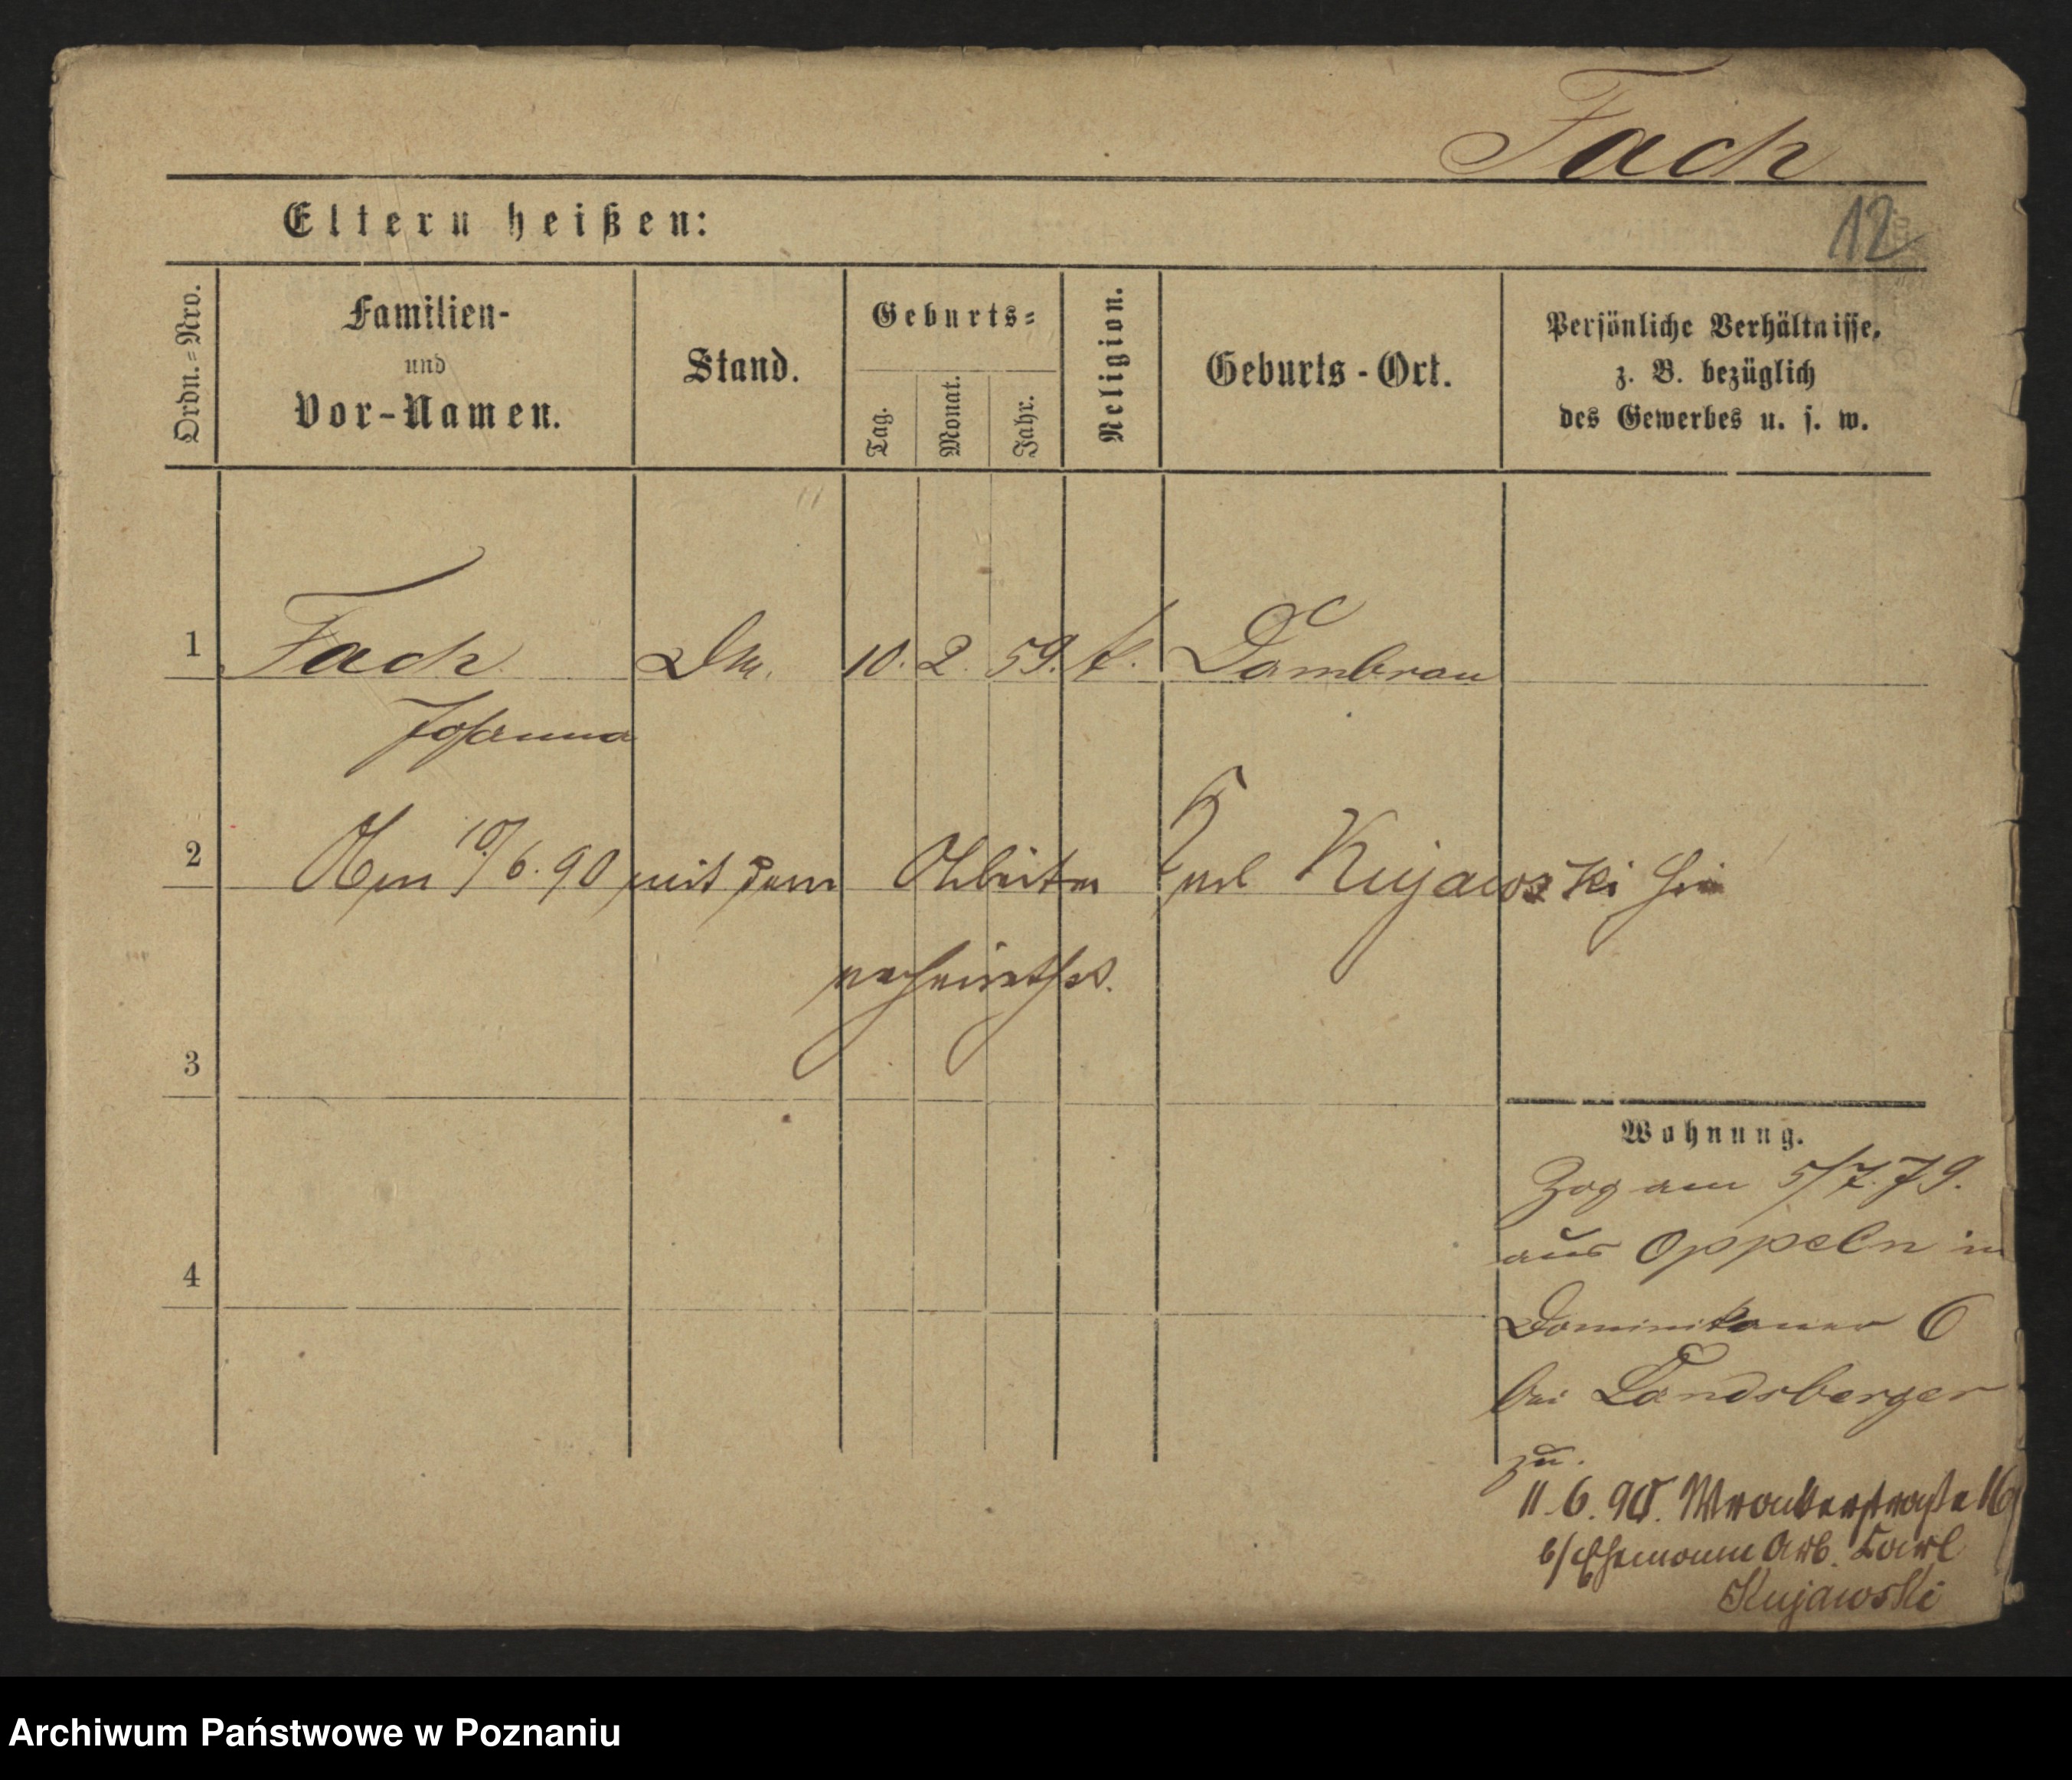 Fach
12
Eltern heißen:
Ordn.-Nro.
Familien-
und
Vor-Namen.
Stand.
Geburts-
Tag.
Monat.
Jahr.
Religion.
Geburts-Ort.
Persönliche Verhältnisse,
z. B. bezüglich
des Gewerbes u. s. w.
1 Fach Dm. 10. 2. 59. k. Dambrau
Johanna
2 Am 10/6. 90 mit dem Arbeiter Karl Kujawski hier
verheirathet.
3
Wohnung.
Zog am 5/7. 79.
aus Oppeln in
4
Dominikaner 6
bei Landsberger
zu.
11. 6. 90. Wronkerstraße 16
b/ Ehemann Arb. Carl
Kujawski
Archiwum Państwowe w Poznaniu